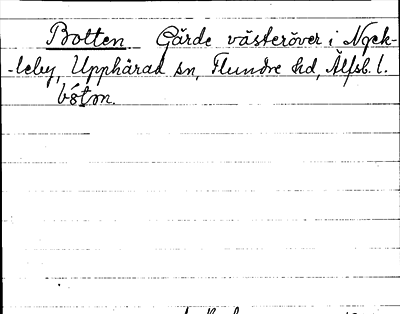 Botten Gärde västeröver i Nyck-
-leby, Upphärad sn, Flundre hd, Älfsb. l.
bóṱṃ.